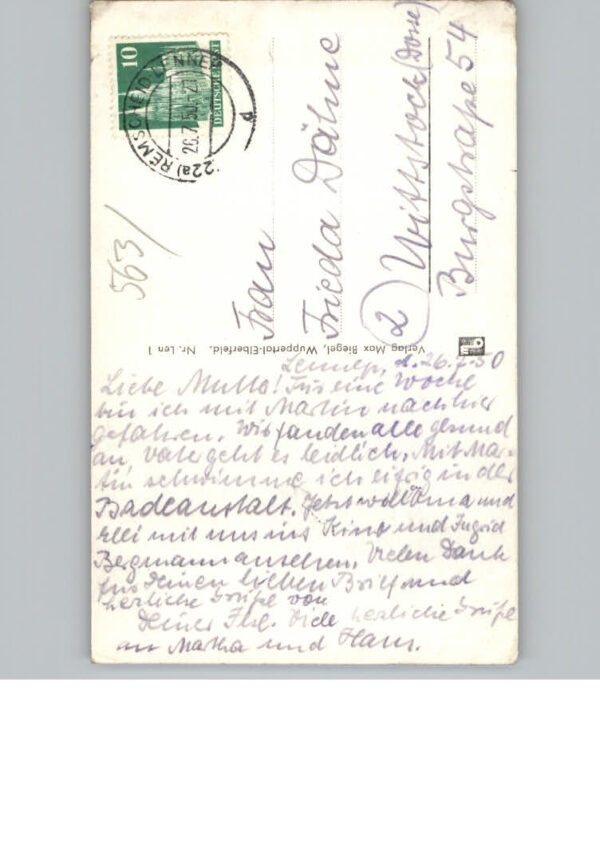 10
DEUTSCHE POST
(22a) REMSCHEID-LENNEP
26.7.50.-21
d
563/
Frau
Frieda Dähne
(2) Wittstock (Dosse)
Burgstraße 54
Verlag Max Biegel, Wuppertal-Elberfeld. Nr. Len 1
Lennep, d. 26.7.50
Liebe Mutts! Für eine Woche
bin ich mit Martin nach hier
gefahren. Wir fanden alle gesund
an, Vater geht es leidlich. Mit Mar-
tin schwimme ich eifrig in der
Badeanstalt. Jetzt will Oma und
Elli mit uns ins Kino und Ingrid
Bergmann ansehen. Vielen Dank
für Deinen lieben Brief und
herzliche Grüße von
Deiner Viele herzliche Grüße
an Martha und Hans.